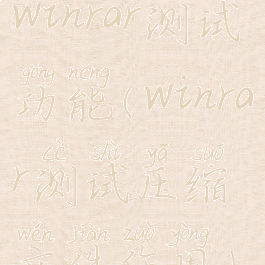 winrar测试
gōng néng
功能(winra
cè shì yā suō
r测试压缩
wén jiàn zuò yòng
文件作用)